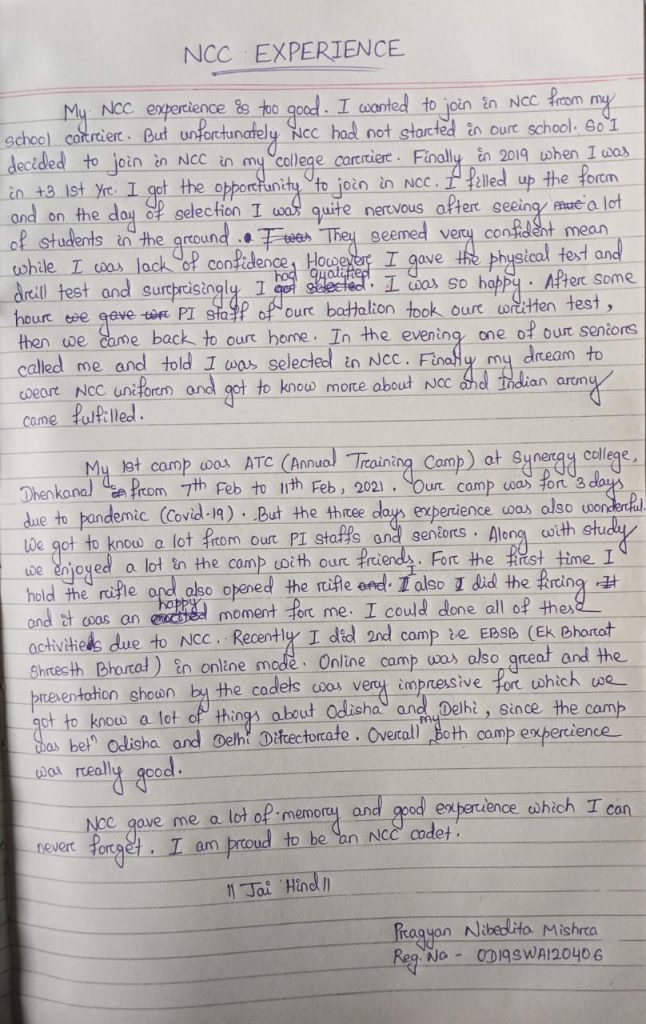 NCC EXPERIENCE
My NCC experience is too good. I wanted to join in NCC from my
school carrier. But unfortunately NCC had not started in our school. So I
decided to join in NCC in my college carrier. Finally in 2019 when I was
in +3 1st yr. I got the opportunity to join in NCC. I filled up the form
and on the day of selection I was quite nervous after seeing a lot
of students in the ground. I was They seemed very confident mean
while I was lack of confidence. However I gave the physical test and
drill test and surprisingly I had qualified got selected. I was so happy. After some
hour we gave our PI staff of our battalion took our written test,
then we came back to our home. In the evening one of our seniors
called me and told I was selected in NCC. Finally my dream to
wear NCC uniform and got to know more about NCC and Indian army
came fulfilled.
My 1st camp was ATC (Annual Training Camp) at Synergy college,
Dhenkanal in from 7th Feb to 11th Feb, 2021. Our camp was for 3 days
due to pandemic (Covid-19). But the three days experience was also wonderful.
We got to know a lot from our PI staffs and seniors. Along with study
we enjoyed a lot in the camp with our friends. For the first time I
hold the rifle and also opened the rifle and. I also I did the firing It
and it was an happy excited moment for me. I could done all of these
activities due to NCC. Recently I did 2nd camp i.e EBSB (Ek Bharat
Shreesth Bharat) in online mode. Online camp was also great and the
presentation shown by the cadets was very impressive for which we
got to know a lot of things about Odisha and Delhi, since the camp
was betn Odisha and Delhi Directorate. Overall my both camp experience
was really good.
NCC gave me a lot of memory and good experience which I can
never forget. I am proud to be an NCC cadet.
|| Jai Hind ||
Pragyan Nibedita Mishra
Reg. No - OD19SWA120406